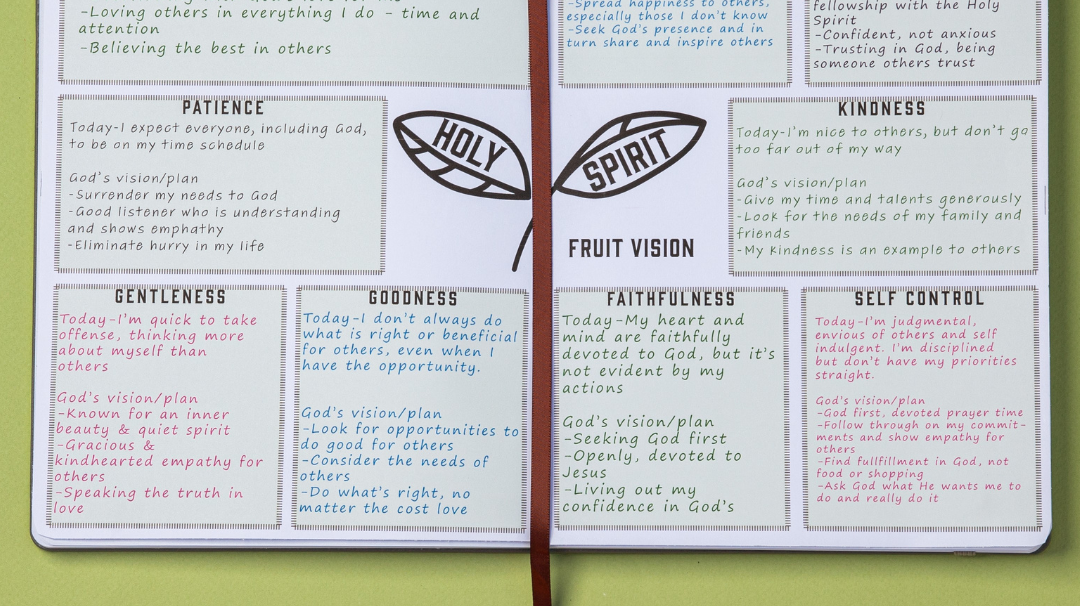 -Loving others in everything I do - time and
attention
-Believing the best in others
-Spread happiness to others,
especially those I don't know
-Seek God's presence and in
turn share and inspire others
fellowship with the Holy
Spirit
-Confident, not anxious
-Trusting in God, being
someone others trust
PATIENCE
Today-I expect everyone, including God,
to be on my time schedule
God's vision/plan
-Surrender my needs to God
-Good listener who is understanding
and shows emphathy
-Eliminate hurry in my life
HOLY
SPIRIT
FRUIT VISION
KINDNESS
Today-I'm nice to others, but don't go
too far out of my way
God's vision/plan
-Give my time and talents generously
-Look for the needs of my family and
friends
-My Kindness is an example to others
GENTLENESS
Today-I'm quick to take
offense, thinking more
about myself than
others
God's vision/plan
-Known for an inner
beauty & quiet spirit
-Gracious &
kindhearted empathy for
others
-Speaking the truth in
love
GOODNESS
Today-I don't always do
what is right or beneficial
for others, even when I
have the opportunity.
God's vision/plan
-Look for opportunities to
do good for others
-Consider the needs of
others
-Do what's right, no
matter the cost love
FAITHFULNESS
Today-My heart and
mind are faithfully
devoted to God, but it's
not evident by my
actions
God's vision/plan
-Seeking God first
-Openly, devoted to
Jesus
-Living out my
confidence in God's
SELF CONTROL
Today-I'm judgmental,
envious of others and self
indulgent. I'm disciplined
but don't have my priorities
straight.
God's vision/plan
-God first, devoted prayer time
-Follow through on my commit-
ments and show empathy for
others
-Find fullfillment in God, not
food or shopping
-Ask God what He wants me to
do and really do it